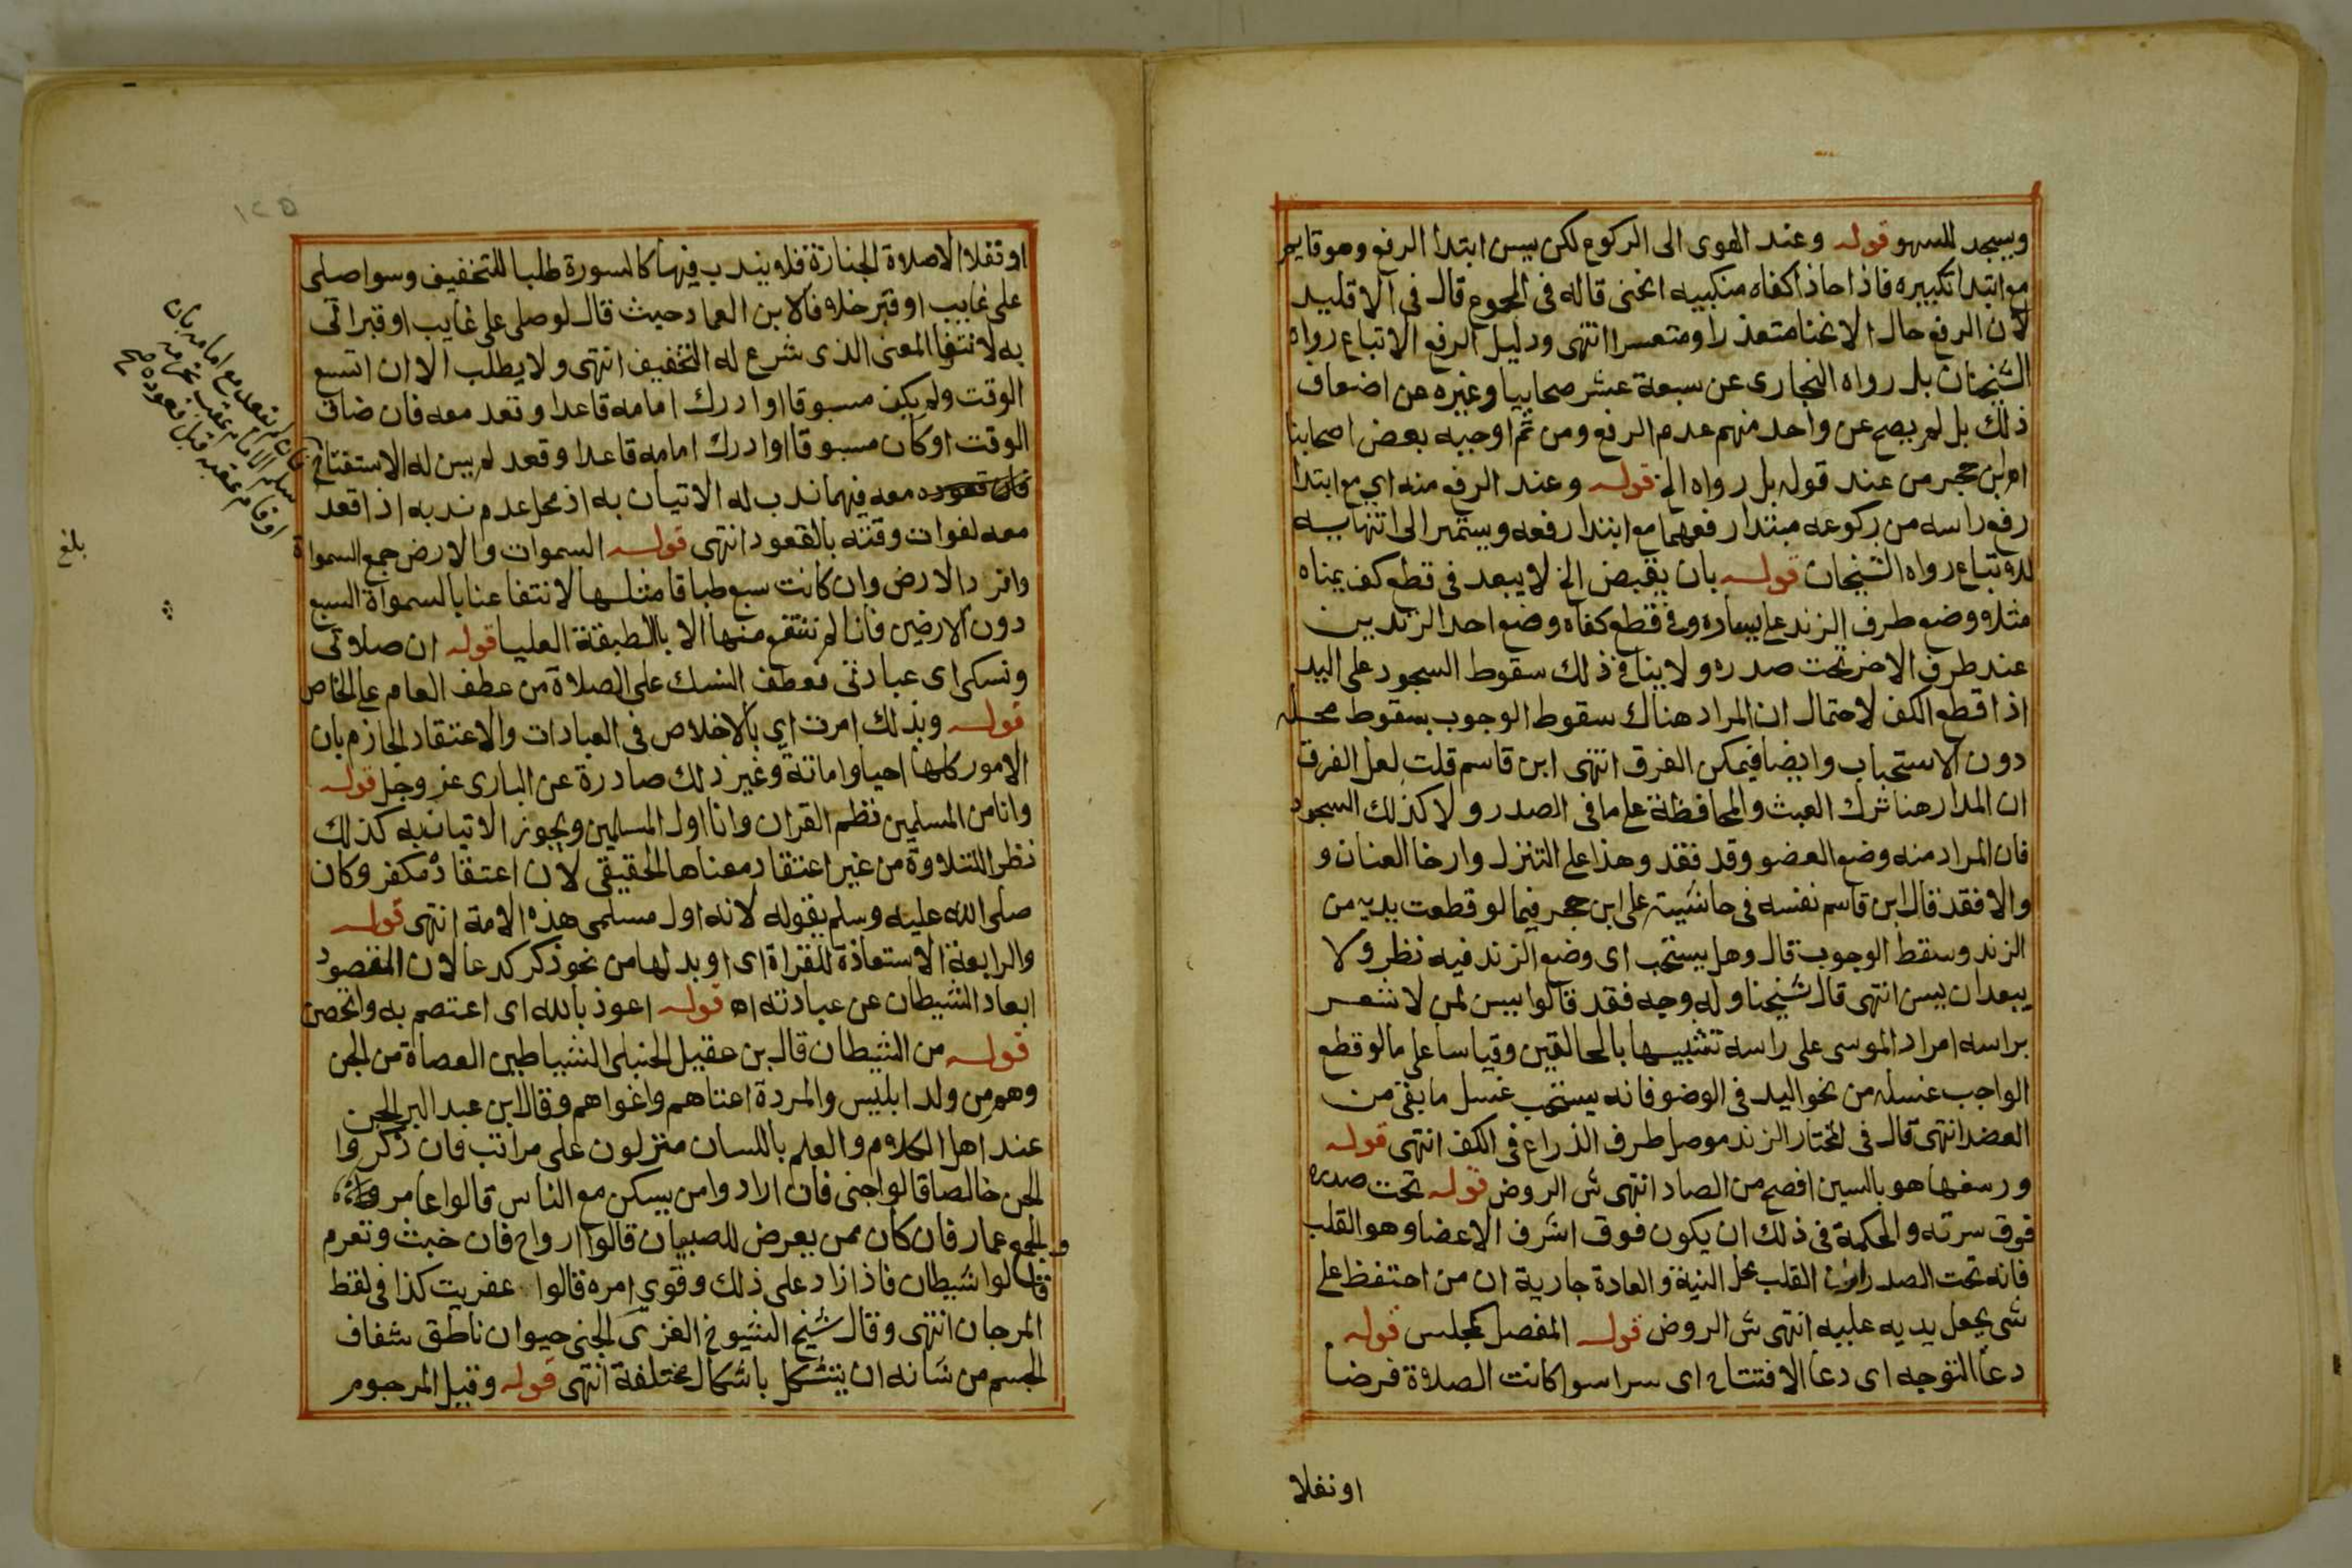 ويسجد للسهو قوله وعند الهوى الى الركوع لكن يسن ابتدا الرفع وهو قايم
مع ابتدا تكبيره فاذا حاذا كفاه منكبيه انحنى قاله فى المجموع قال فى الاقليد
لان الرفع حال الانحنا متعذر او متعسر انتهى ودليل الرفع الاتباع رواه
الشيخان بل رواه البخارى عن سبعة عشر صحابيا وغيره عن اضعاف
ذلك بل لم يصح عن واحد منهم عدم الرفع ومن ثم اوجبه بعض اصحابنا
اه ابن حجر من عند قوله بل رواه الخ قوله وعند الرفع منه اي مع ابتدا
رفع راسه من ركوعه مبتدا رفعهما مع ابتدا رفعه ويستمر الى انتهايه
للاتباع رواه الشيخان قوله بان يقبض الخ لا يبعد فى قطع كف يمناه
مثلا ووضع طرف الزند على يساره وفى قطع كفاه وضع احد الزندين
عند طرف الاخر تحت صدره ولا ينافى ذلك سقوط السجود على اليد
اذا قطع الكف لاحتمال ان المراد هناك سقوط الوجوب بسقوط محله
دون الاستحباب وايضا فيمكن الفرق انتهى ابن قاسم قلت لعل الفرق
ان المدار هنا ترك العبث والمحافظة على ما فى الصدر ولا كذلك السجود
فان المراد منه وضع العضو وقد فقد وهذا على التنزل وارخا العنان و
والا فقد قال ابن قاسم نفسه فى حاشيته على ابن حجر فيما لو قطعت يديه من
الزند وسقط الوجوب قال وهل يستحب اى وضع الزند فيه نظر ولا
يبعد ان يسن انتهى قال شيخنا وله وجه فقد قالوا يسن لمن لا شعر
براسه امرار الموسى على راسه تشبيها بالحالقين وقياسا على ما لو قطع
الواجب غسله من نحو اليد فى الوضو فانه يستحب غسل ما بقى من
العضد انتهى قال فى المختار الزند موصل طرف الذراع فى الكف انتهى قوله
ورسغها هو بالسين افصح من الصاد انتهى ش الروض قوله تحت صدره
فوق سرته والحكمة فى ذلك ان يكون فوق اشرف الاعضا وهو القلب
فانه تحت الصدر القلب محل النية والعادة جارية ان من احتفظ على
شى يجعل يديه عليه انتهى ش الروض قوله المفصل كمجلس قوله
دعا التوجه اى دعا الافتتاح اى سرا سوا كانت الصلاة فرضا
او نفلا
١٢٥
او نفلا الا صلاة الجنازة فلا يندب فيها كالسورة طلبا للتخفيف وسوا صلى
على غايب او قبر خلافا لابن العماد حيث قال لو صلى على غايب او قبر اتى
به لانتفا المعنى الذى شرع له التخفيف انتهى ولا يطلب الا ان اتسع
الوقت ولم يكن مسبوقا او ادرك امامه قاعدا وقعد معه فان ضاق
الوقت او كان مسبوقا او ادرك امامه قاعدا وقعد لم يسن له الاستفتاح
فان قعوده معه فيهما ندب له الاتيان به اذ محل عدم ندبه اذا قعد
معه لفوات وقته بالقعود انتهى قوله السموات والارض جمع السموات
وافرد الارض وان كانت سبع طباقا مثلها لانتفاعنا بالسموات السبع
دون الارضين فانا لم ننتفع منها الا بالطبقة العليا قوله ان صلاتى
ونسكى اى عبادتى فعطف النسك على الصلاة من عطف العام على الخاص
قوله وبذلك امرت اي بالاخلاص فى العبادات والاعتقاد الجازم بان
الامور كلها احيا واماتة وغير ذلك صادرة عن البارى عز وجل قوله
وانا من المسلمين نظم القران وانا اول المسلمين ويجوز الاتيان به كذلك
نظرا للتلاوة من غير اعتقاد معناها الحقيقى لان اعتقاده مكفر وكان
صلى الله عليه وسلم يقوله لانه اول مسلمى هذه الامة انتهى قوله
والرابعة الاستعاذة للقراة اى او بدلها من نحو ذكر كدعا لان المقصود
ابعاد الشيطان عن عبادته اه قوله اعوذ بالله اى اعتصم به واتحصن
قوله من الشيطان قال بن عقيل الحنبلى الشياطين العصاة من الجن
وهم من ولد ابليس والمردة اعتاهم واغواهم وقال ابن عبد البر الجن
عند اهل الكلام والعلم باللسان منزلون على مراتب فان ذكروا
الجن خالصا قالوا جنى فان ارادوا من يسكن مع الناس قالوا عامر
والجمع عمار فان كان ممن يعرض للصبيان قالوا ارواح فان خبث وتعرم
قالوا شيطان فاذا زاد على ذلك وقوي امره قالوا عفريت كذا فى لقط
المرجان انتهى وقال شيخ الشيوخ الغزى الجنى حيوان ناطق شفاف
الجسم من شانه ان يتشكل باشكال مختلفة انتهى قوله وقيل المرجوم
فان لم يقعد مع امامه بان
سلم الامام عقب تحرمه
او قام عقبه قبل قعوده صح
بلغ